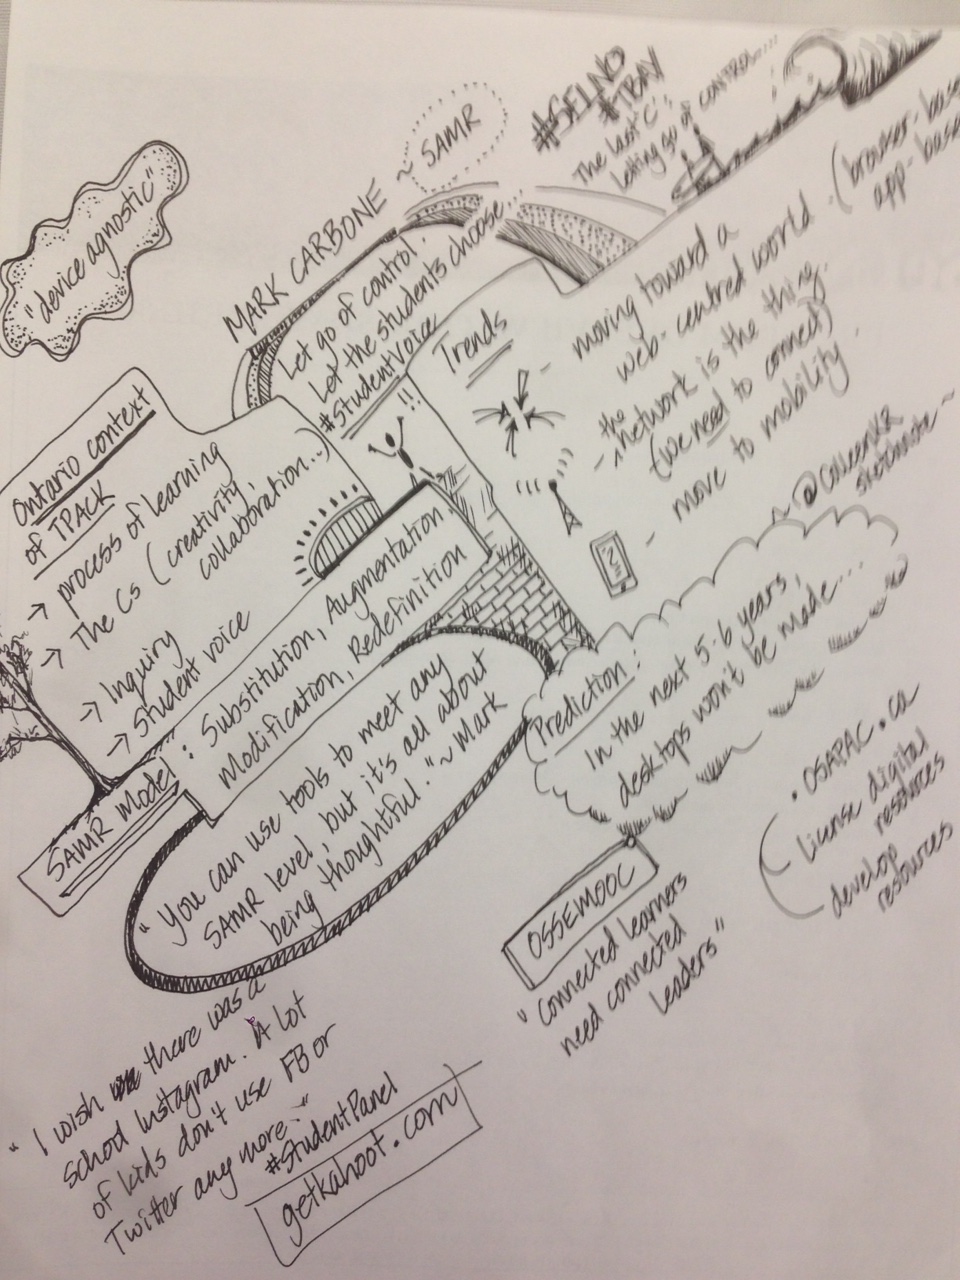 "device agnostic"
MARK CARBONE ~ SAMR
#TBAY
The last 'C':
letting go of CONTROL...
Let go of control.
Let the students choose...
#studentvoice
!!
Ontario context
of TPACK
→ process of learning
→ The Cs (creativity,
collaboration...)
→ Inquiry
→ Student voice
SAMR Model
: Substitution, Augmentation
Modification, Redefinition
"You can use tools to meet any
SAMR level, but it's all about
being thoughtful." ~Mark
Trends
- moving toward a
web-centred world
(browser-based
app-based
- the network is the thing.
(we need to connect)
- move to mobility
~ @ColleenKR
sketchnote ~
Prediction:
In the next 5-6 years,
desktops won't be made...
OSSEMOOC
"Connected learners
need connected
leaders"
• OSAPAC.ca
License digital
resources
develop
resources
"I wish there was a
school Instagram. A lot
of kids don't use FB or
Twitter any more."
#StudentPanel
getkahoot.com